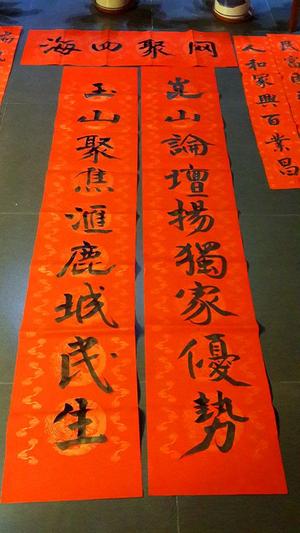 海西聚网
崑山論壇揚獨家優勢
玉山聚焦滙鹿城民生
民富
人和家興百業昌